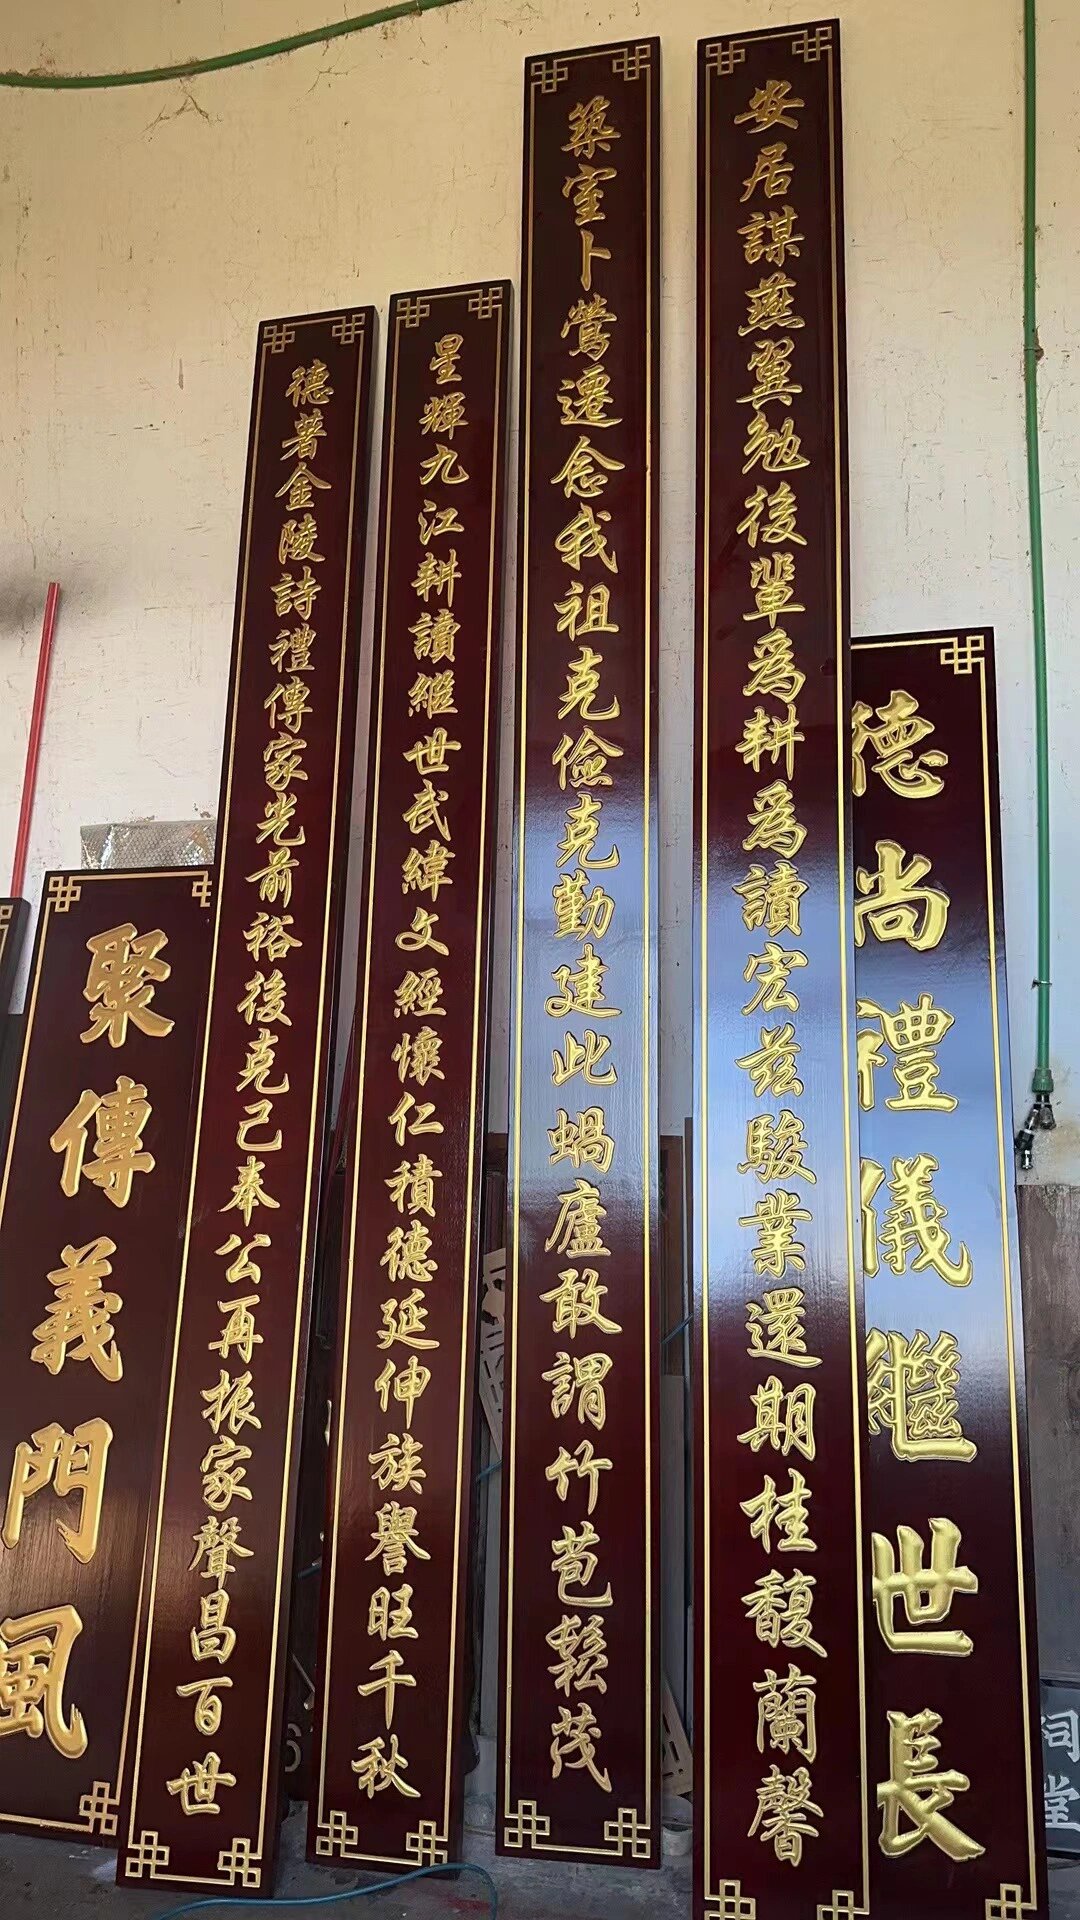 德尚禮儀繼世長
安居謀燕翼勉後輩為耕為讀宏茲駿業還期桂馥蘭馨
築室卜鶯遷念我祖克儉克勤建此蝸廬敢謂竹苞鬆茂
星輝九江耕讀繼世武緯文經懷仁積德延伸族譽旺千秋
德著金陵詩禮傳家光前裕後克己奉公再振家聲昌百世
聚傳義門風
祠堂